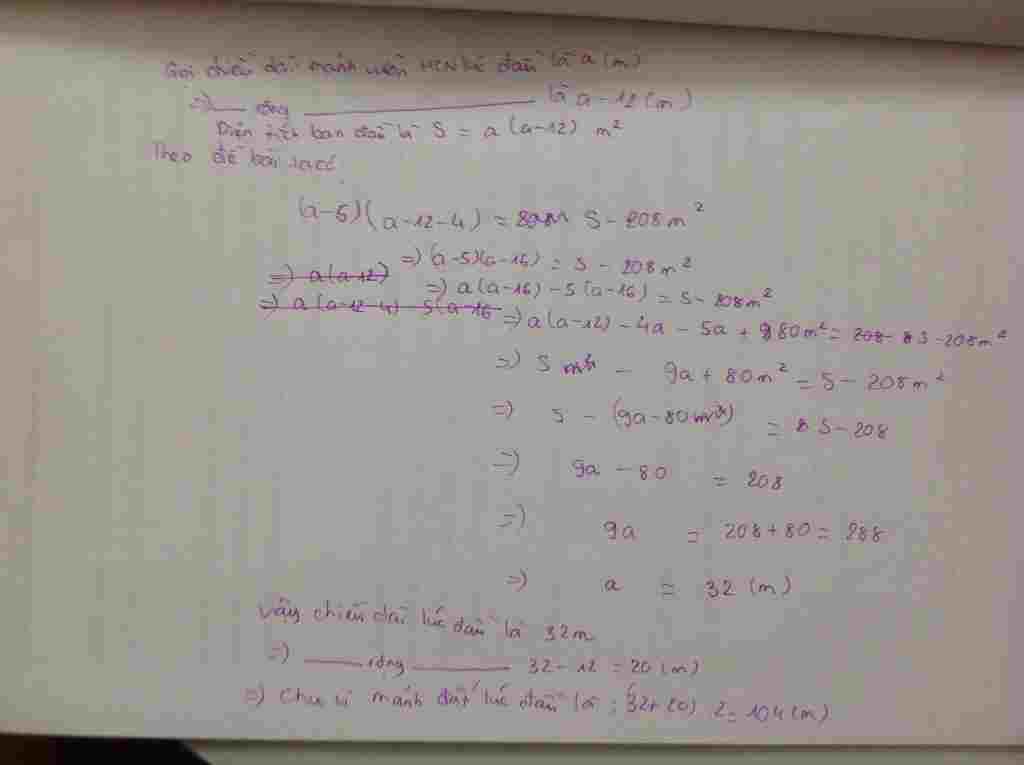 Gọi chiều dài mảnh vườn HCN lúc đầu là a (m)
=> __ rộng ______ là a-12 (m)
Diện tích ban đầu là S = a(a-12) m²
Theo đề bài ta có
(a-5)(a-12-4) = S - 208m²
=> (a-5)(a-16) = S - 208m²
=> a(a-12)
=> a(a-16) - 5(a-16) = S - 208m²
=> a(a-12-4) - 5(a-16
=> a(a-12) - 4a - 5a + 80m² = S - 208m²
=> S - 9a + 80m² = S - 208m²
=> S - (9a-80m²) = S - 208
=> 9a - 80 = 208
=> 9a = 208 + 80 = 288
=> a = 32 (m)
Vậy chiều dài lúc đầu là 32m
=> ____ rộng ____ 32 - 12 = 20 (m)
=> Chu vi mảnh đất lúc đầu là : (32+20) 2 = 104 (m)